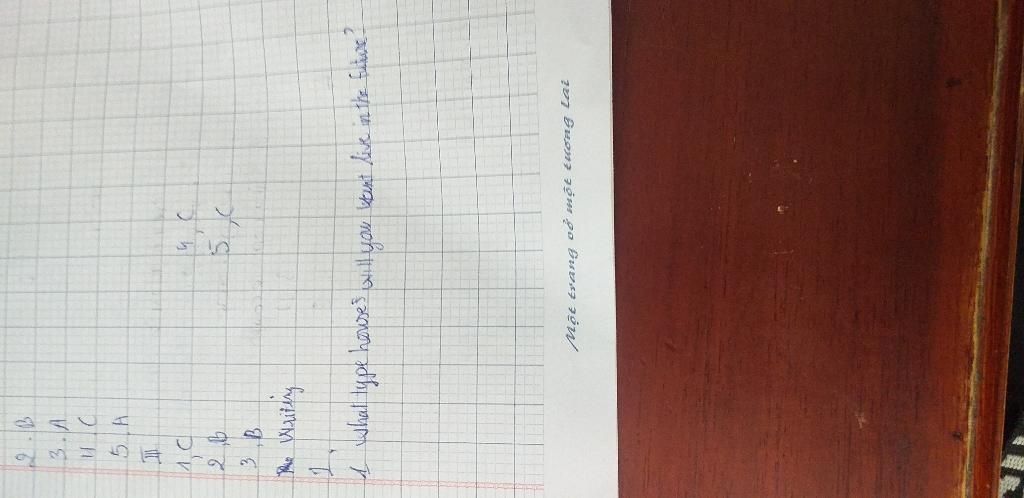 2. B
3. A
4, C
5. A
III
1, C 4, C
2, B 5, C
3, B
Writing
I,
1 What type houses will you want live in the future?
Một trang vở một tương lai